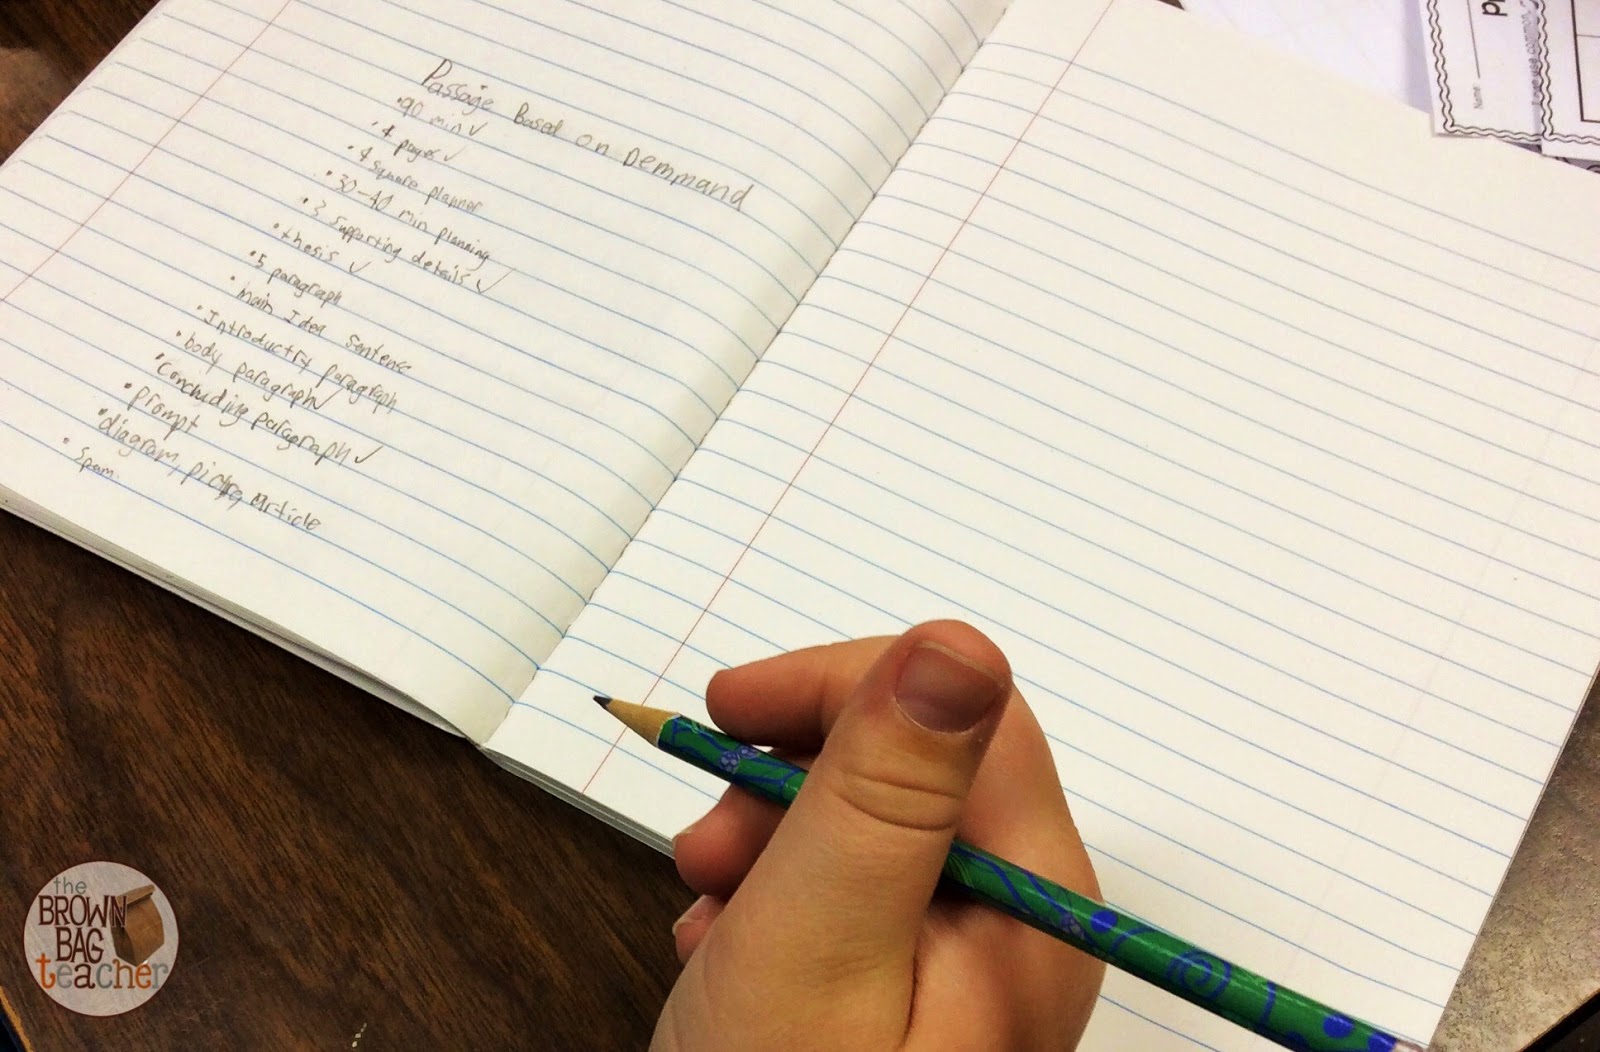 Passage Based on Demmand
• 90 min ✓
• 4 pages ✓
• 4 square planner
• 30-40 min planning
• 3 supporting details ✓
• thesis ✓
• 5 paragraph
• main Idea sentence
• Introductry paragraph
• body paragraph ✓
• concluding paragraph ✓
• prompt
• diagram, article
• 5pam.
Name
the
BROWN
BAG
teacher